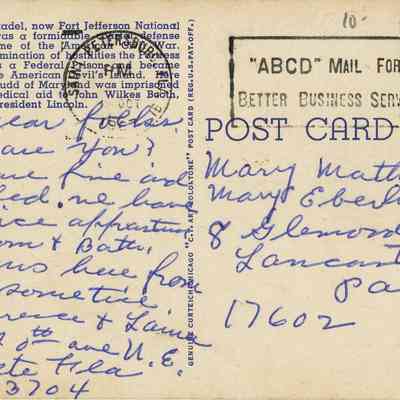 tadel, now Fort Jefferson National
was a formidable
defense
me of the American
War.
mination of hostilities the Fortress
s a Federal Prison
became
e American Devil's Island. Here
udd of Maryland was imprisoned
edical aid to John Wilkes Booth,
resident Lincoln.
SAINT PETERSBURG
PM
OCT
10-
"ABCD" MAIL FOR
BETTER BUSINESS SERV
POST CARD
GENUINE CURTEICH-CHICAGO "C.T. ART-COLORTONE" POST CARD (REG. U.S. PAT. OFF.)
ear folks.
are you?
are fine and
we have
ice appartment
oom & Bath.
us here from
sometice
rence & Laina
0th ave N. E.
ete Fla
3704
Mary Math
Mary Eberl
8 Glemond
Lancast
Pa
17602